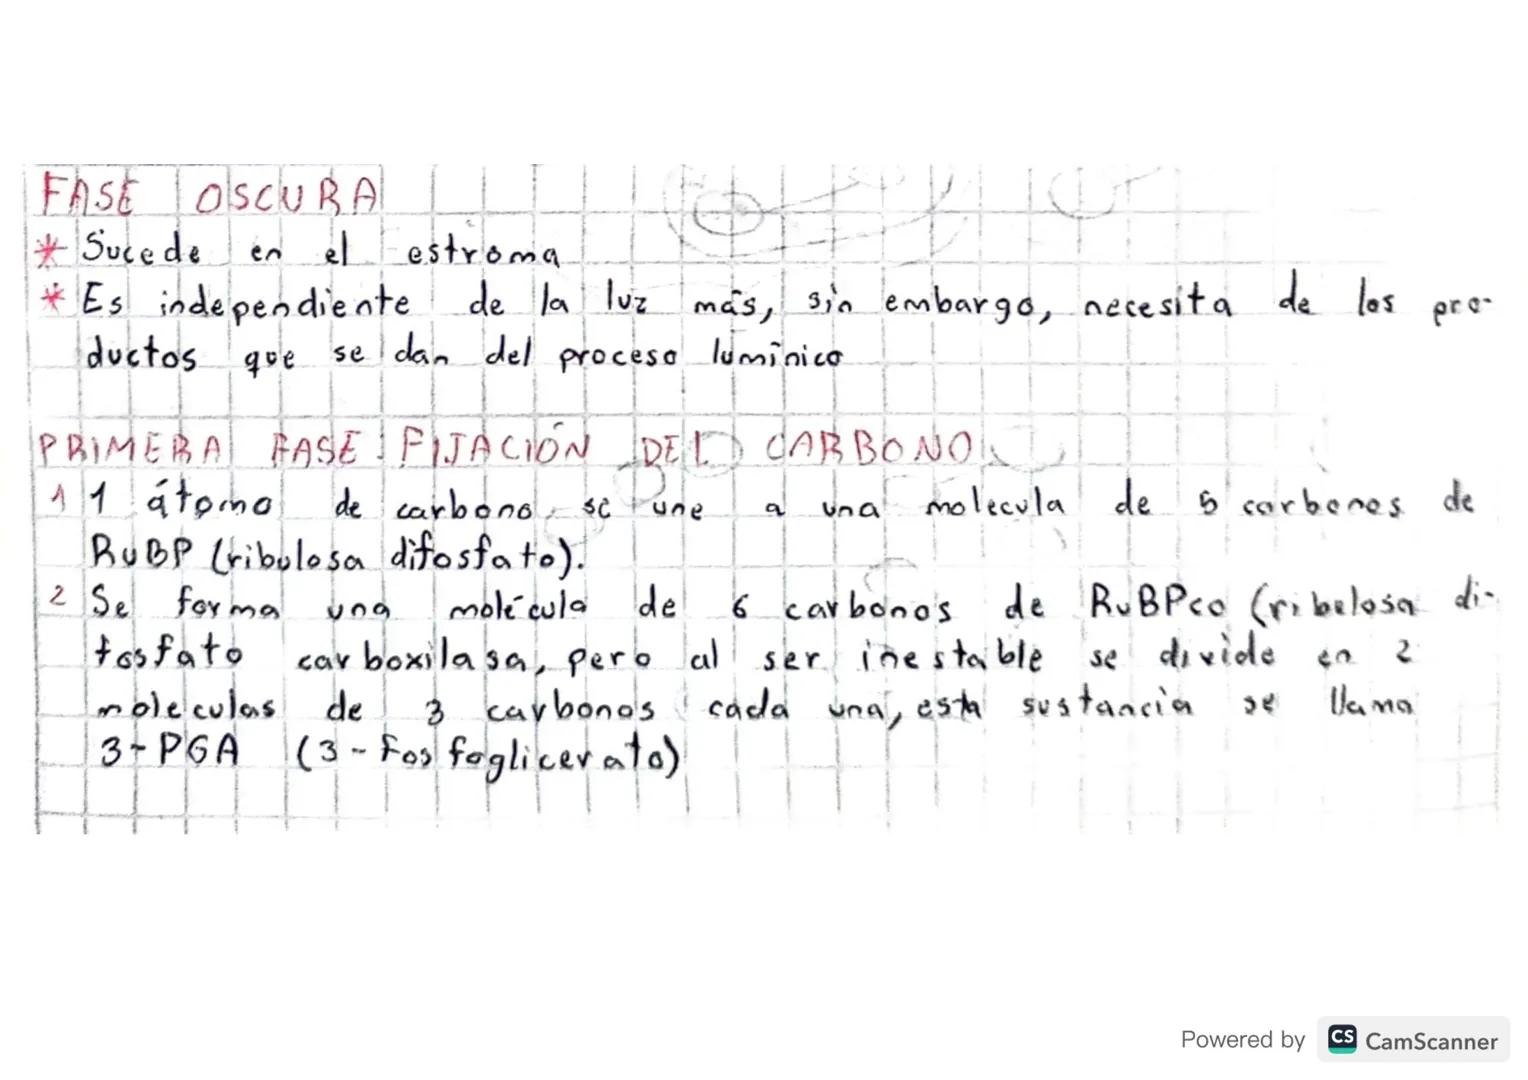 FASE OSCURA
* Sucede en el estroma
* Es independiente de la luz más, sin embargo, necesita de los pro-
ductos que se dan del proceso lumínico
PRIMERA FASE: FIJACIÓN DEL CARBONO
1 1 átomo de carbono se une a una molecula de 5 carbonos de
RuBP (ribulosa difosfato).
2 Se forma una molécula de 6 carbonos de RuBPco (ribulosa di-
fosfato carboxilasa, pero al ser inestable se divide en 2
moleculas de 3 carbonos cada una, esta sustancia se llama
3-PGA (3-Fosfoglicerato)
Powered by CS CamScanner